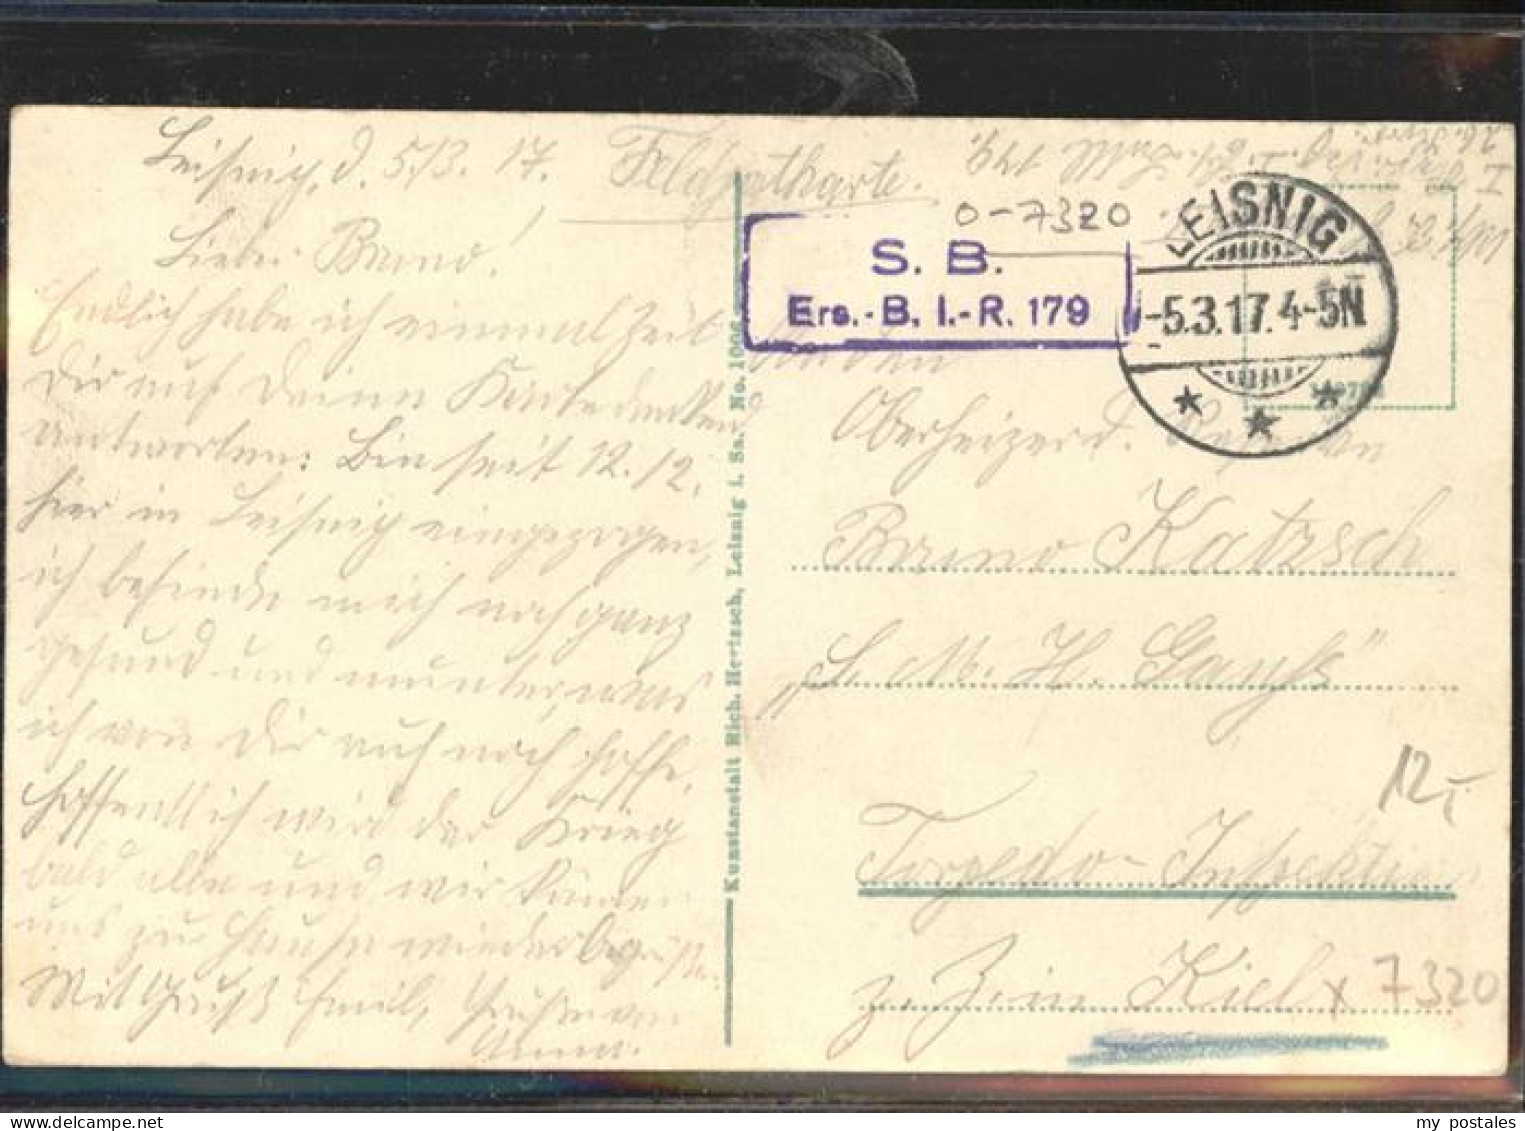 Leisnig, d. 5./3. 17.
Feldpostkarte.
Lieber Bruno!
Endlich habe ich einmal Zeit
Dir auf Deine Karte danken
antworten: Bin seit 12./2.
hier in Leisnig eingezogen,
ich befinde mich noch ganz
gesund und munter, was
ich von Dir auch noch hoffe.
Hoffentlich wird der Krieg
bald alle und wir können
uns zu Hause wieder
Mit Gruß Emil,
0-7320
S. B.
Ers.-B. I.-R. 179
LEISNIG
-5.3.17. 4-5N
Oberheizer d.
Bruno Katzsch
„S. M. H.
Torpedo-Inspektion
z. Z. in Kiel x 7320
12,-
Kunstanstalt Rich. Hertzsch, Leisnig i. Sa. No. 1006
my postales